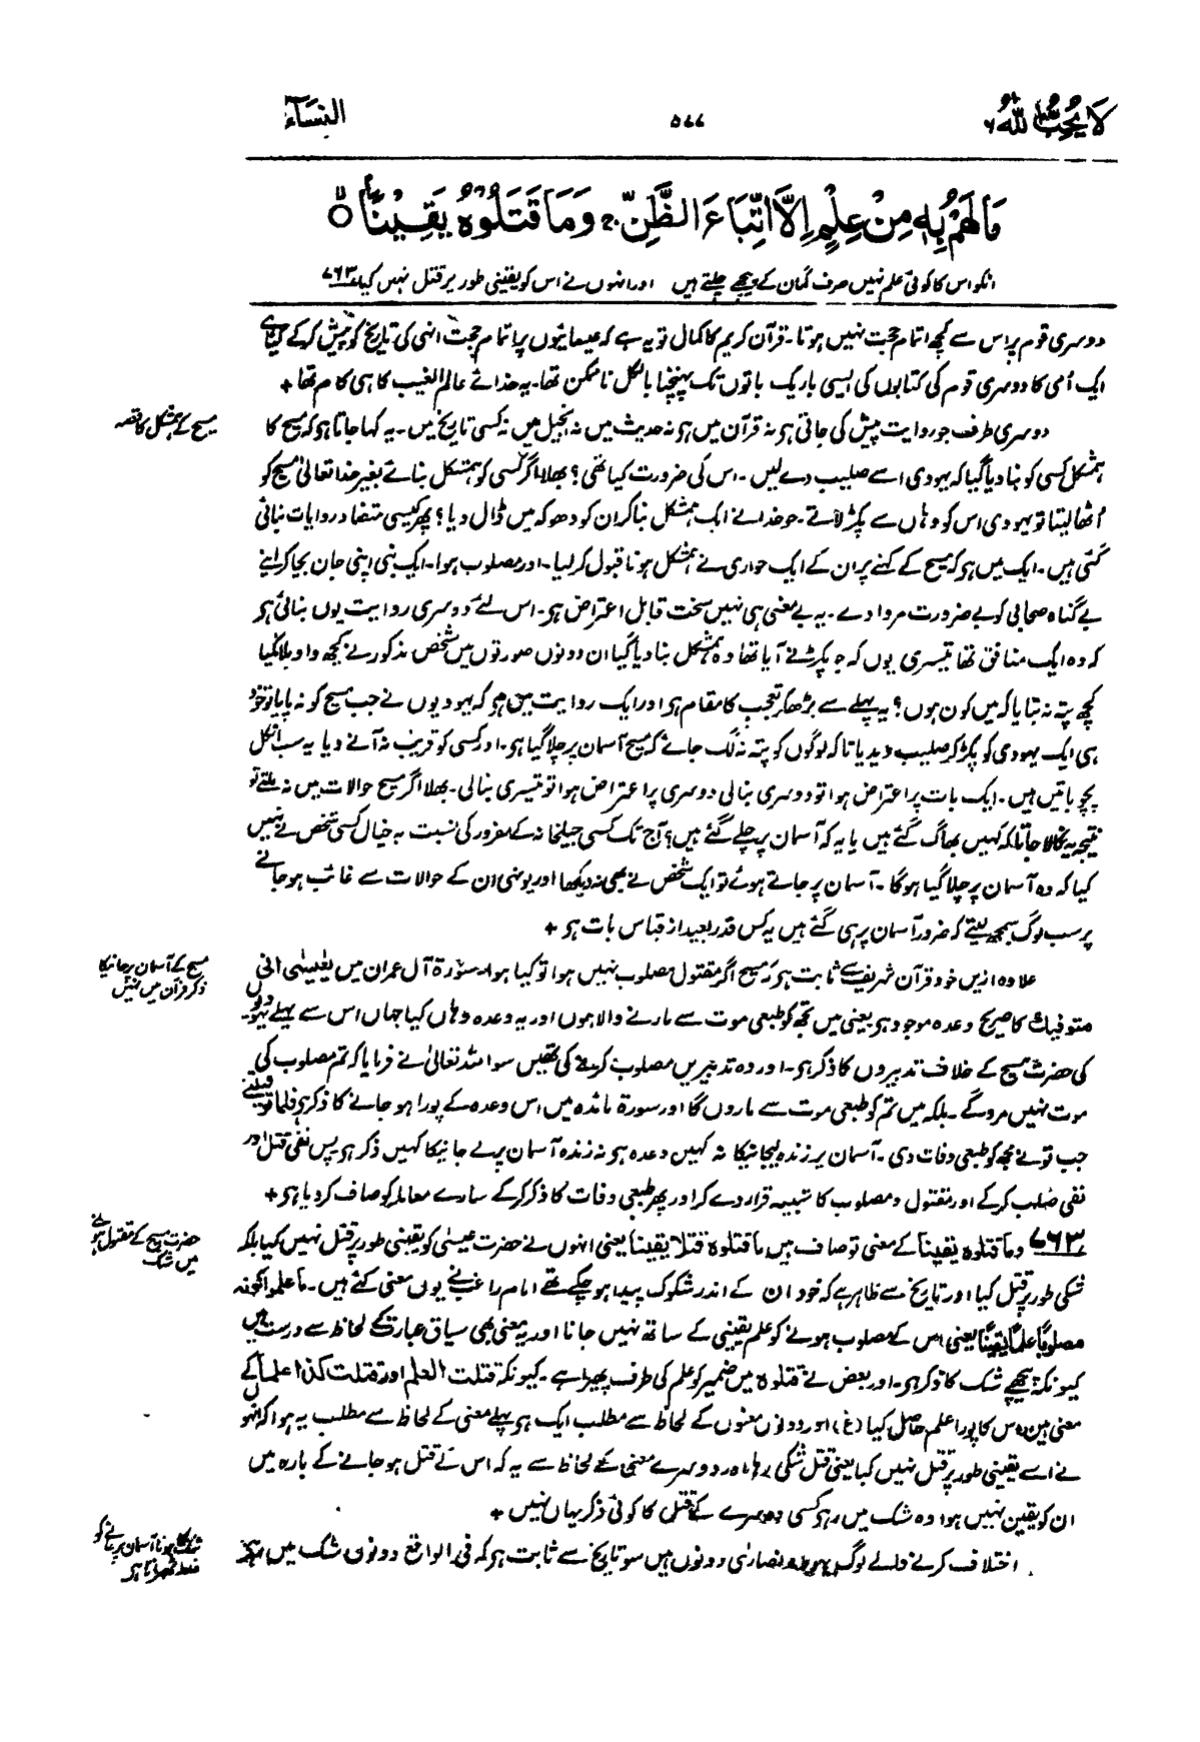 لَا يُحِبُّ اللّٰهُ ۶
۵۷۷
النِّسَآء
مَا لَهُمْ بِهٖ مِنْ عِلْمٍ اِلَّا اتِّبَاعَ الظَّنِّ ۚ وَمَا قَتَلُوْهُ يَقِيْنًا ۙ
انکو اس کا کوئی علم نہیں صرف گمان کے پیچھے چلتے ہیں اور انہوں نے اس کو یقینی طور پر قتل نہیں کیا ۷۶۳
دوسری قوم پر اس سے کچھ اتمام حجت نہیں ہوتا۔ قرآن کریم کا کمال تو یہ ہے کہ عیسائیوں پر اتمام حجت انہی کی تاریخ کو پیش کر کے کیا ہے
ایک اُمی کا دوسری قوم کی کتابوں کی ایسی باریک باتوں تک پہنچنا بالکل ناممکن تھا۔ یہ خدائے عالم الغیب کا ہی کام تھا +
مسیح کے ہمشکل کا قصہ
دوسری طرف جو روایت پیش کی جاتی ہو نہ قرآن میں ہو نہ حدیث میں نہ انجیل میں نہ کسی تاریخ میں۔ یہ کہا جاتا ہو کہ مسیح کا
ہمشکل کسی کو بنا دیا گیا کہ یہودی اسے صلیب دے لیں۔ اس کی ضرورت کیا تھی؟ بھلا اگر کسی کو ہمشکل بنائے بغیر خدا تعالیٰ مسیح کو
اُٹھا لیتا تو یہودی اس کو وہاں سے پکڑ لاتے۔ جو خدا نے ایک ہمشکل بنا کر ان کو دھوکہ میں ڈال دیا؟ پھر کیسی متضاد روایات بنائی
گئی ہیں۔ ایک میں ہو کہ مسیح کے کہنے پر ان کے ایک حواری نے ہمشکل ہونا قبول کر لیا۔ اور مصلوب ہوا۔ ایک نبی اپنی جان بچا کر اپنے
بے گناہ صحابی کو بے ضرورت مروا دے۔ یہ بے معنی ہی نہیں سخت قابل اعتراض ہو۔ اس لئے دوسری روایت یوں بنائی ہو
کہ وہ ایک منافق تھا تیسری یوں کہ جو پکڑنے آیا تھا وہ ہمشکل بنا دیا گیا ان دونوں صورتوں میں شخص مذکور نے کچھ واویلا کیا
کچھ پتہ نہ بتایا کہ میں کون ہوں؟ یہ پہلے سے بڑھکر تعجب کا مقام ہو اور ایک روایت میں ہو کہ یہودیوں نے جب مسیح کو نہ پایا تو خود
ہی ایک یہودی کو پکڑ کر صلیب دیدیا تاکہ لوگوں کو پتہ نہ لگ جائے کہ مسیح آسمان پر چلا گیا ہو۔ اور کسی کو قریب نہ آنے دیا یہ سب اٹکل
پچو باتیں ہیں۔ ایک بات پر اعتراض ہوا تو دوسری بنا لی دوسری پر اعتراض ہوا تو تیسری بنا لی۔ بھلا اگر مسیح حوالات میں نہ ملتے تو
نتیجہ یہ نکالا جاتا کہ کہیں بھاگ گئے ہیں یا یہ کہ آسمان پر چلے گئے ہیں؟ آج تک کسی جیلخانہ کے مفرور کی نسبت یہ خیال کسی شخص نے نہیں
کیا کہ وہ آسمان پر چلا گیا ہوگا۔ آسمان پر جاتے ہوئے تو ایک شخص نے بھی نہ دیکھا اور یونہی ان کے حوالات سے غائب ہو جانے
پر سب لوگ سمجھ لیتے کہ ضرور آسمان پر ہی گئے ہیں یہ کس قدر بعید از قیاس بات ہو +
مسیح کے آسمان پر جانیکا
ذکر قرآن میں نہیں
علاوہ ازیں خود قرآن شریف سے ثابت ہو کہ مسیح اگر مقتول مصلوب نہیں ہوا تو کیا ہوا۔ سورۃ آل عمران میں یٰعیسٰی انی
متوفیک کا صریح وعدہ موجود ہو یعنی میں تجھ کو طبعی موت سے مارنے والا ہوں اور یہ وعدہ وہاں کیا جہاں اس سے پہلے یہودیوں
کی حضرت مسیح کے خلاف تدبیروں کا ذکر ہو۔ اور وہ تدبیریں مصلوب کرنے کی تھیں سو اللہ تعالیٰ نے فرمایا کہ تم مصلوب کی
موت نہیں مرو گے۔ بلکہ میں تم کو طبعی موت سے ماروں گا اور سورۃ مائدہ میں اس وعدہ کے پورا ہو جانے کا ذکر ہو فلما توفیتنی
جب تو نے مجھ کو طبعی وفات دی۔ آسمان پر زندہ لیجانیکا نہ کہیں وعدہ ہو نہ زندہ آسمان پر لے جانیکا کہیں ذکر ہو پس نفی قتل اور
نفی صلب کر کے اور مقتول و مصلوب کا شبیہ قرار دے کر اور پھر طبعی وفات کا ذکر کر کے سارے معاملہ کو صاف کر دیا ہو +
حضرت مسیح کے مقتول ہونے
میں شک
۷۶۳ وما قتلوہ یقینا کے معنی تو صاف ہیں ما قتلوہ قتلا یقینا یعنی انہوں نے حضرت عیسیٰ کو یقینی طور پر قتل نہیں کیا بلکہ
شکی طور پر قتل کیا اور تاریخ سے ظاہر ہے کہ خود ان کے اندر شکوک پیدا ہو چکے تھے امام راغب نے یوں معنی کئے ہیں۔ ما علموا کونہ
مصلوبًا علمًا یقینًا یعنی اس کے مصلوب ہونے کو علم یقینی کے ساتھ نہیں جانا اور یہ معنی بھی سیاق عبارت کے لحاظ سے درست ہیں
کیونکہ پیچھے شک کا ذکر ہو۔ اور بعض نے قتلوہ میں ضمیر کو علم کی طرف پھیرا ہے۔ کیونکہ قتلت العلم اور قتلت کذا علما کے
معنی ہیں اس کا پورا علم حاصل کیا (غ) اور دونوں معنوں کے لحاظ سے مطلب ایک ہو پہلے معنی کے لحاظ سے مطلب یہ ہوا کہ انہوں
نے اسے یقینی طور پر قتل نہیں کیا یعنی قتل شکی رہا اور دوسرے معنی کے لحاظ سے یہ کہ اس کے قتل ہو جانے کے بارہ میں
ان کو یقین نہیں ہوا وہ شک میں رہو کسی دوسرے کے قتل کا کوئی ذکر یہاں نہیں +
شک کا ہونا آسمان پر جانے کو
غلط ٹھہراتا ہو
اختلاف کرنے والے لوگ یہود و نصاریٰ دونوں ہیں سو تاریخ سے ثابت ہو کہ فی الواقع دونوں شک میں